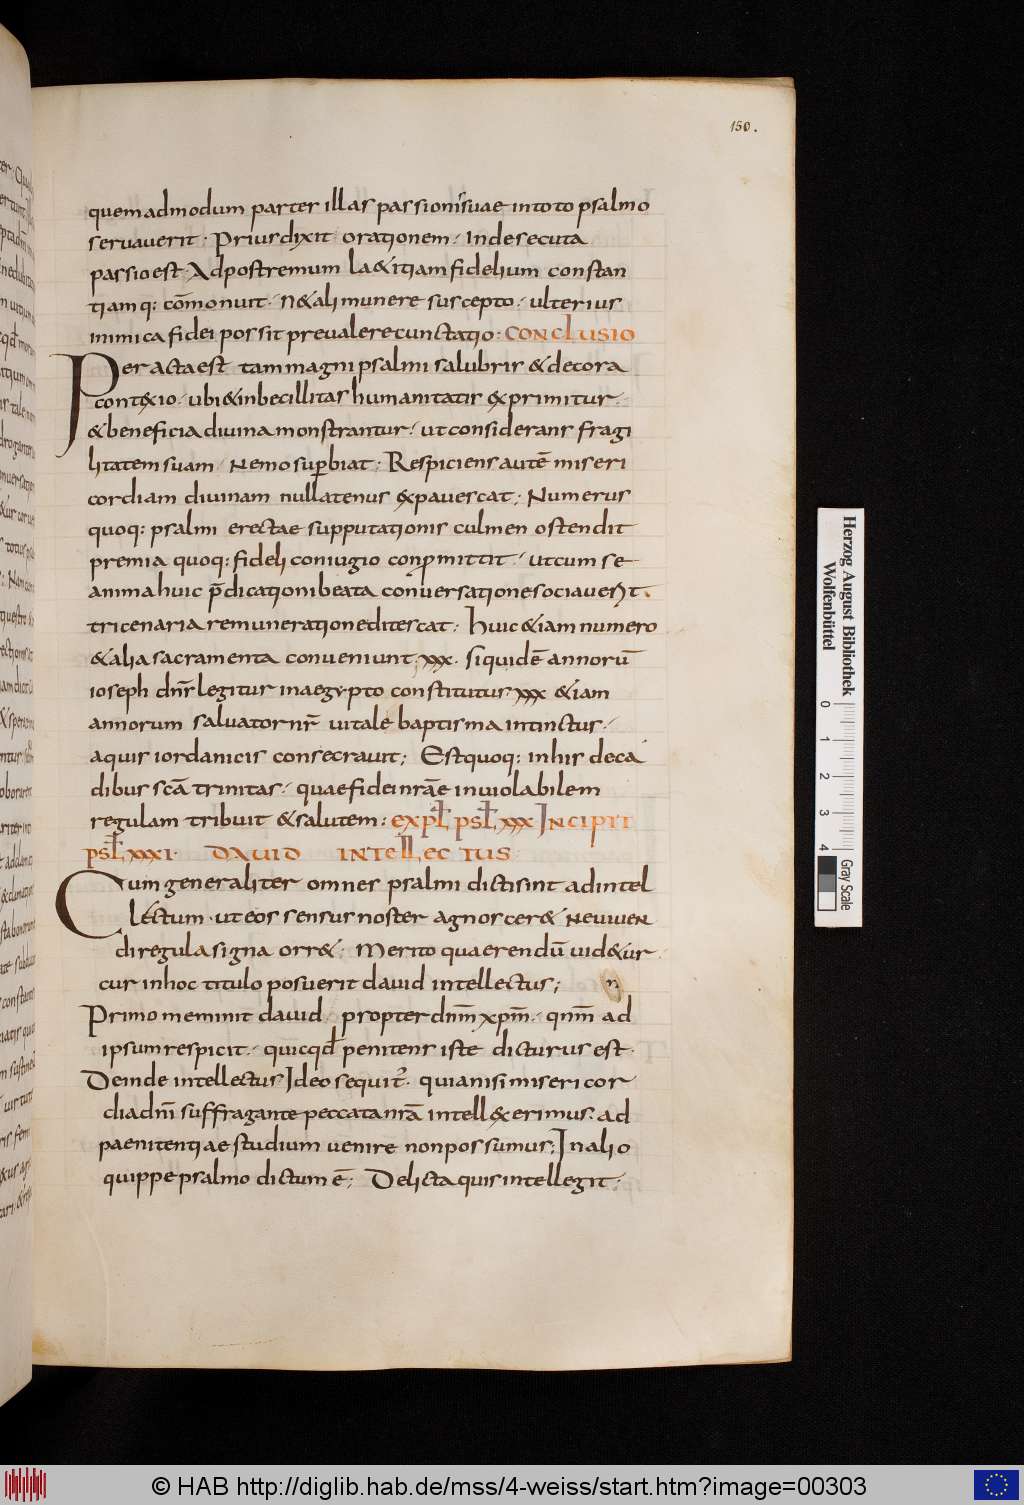 150.
quemadmodum partes illas passionis suae in toto psalmo
servaverit · Prius dixit orationem · Inde secuta
passio est · Ad postremum la&itiam fidelium constan
tiamq: cōmonuit · N& ali munere suscepto · ulterius
inimica fidei possit prevalere cunctatio: CONCLUSIO
Peracta est tam magni psalmi salubris & decora
cont&xio · ubi & inbecillitas humanitatis exprimitur ·
& beneficia divina monstrantur · ut considerans fragi
litatem suam · Nemo supbiat; Respiciens autē miseri
cordiam divinam nullatenus expavescat; Numerus
quoq: psalmi erectae supputationis culmen ostendit
premia quoq: fideli coniugio conpmittit · ut cum se
anima huic p̄dicationi beata conversatione sociaverit
tricenaria remuneratione ditescat; Huic &iam numero
& alia sacramenta conveniunt; xxx. siquidē annorū
ioseph dn̄s legitur in aegypto constitutus xxx &iam
annorum salvator nr̄ vitale baptisma intinctus ·
aquis iordanicis consecravit; Est quoq: in his deca
dibus scā trinitas · quae fidei nr̄ae inviolabilem
regulam tribuit & salutem: EXPL PSL XXX INCIPIT
PSL XXXI· DAVID INTELLECTUS
Cum generaliter omnes psalmi dicti sint ad intel
lectum · ut eos sensus noster agnoscer& Ne viven
di regula signa orr&; Merito quaerendū vid&ur
cur in hoc titulo posuerit david intellectus;
Primo meminit david · propter dn̄m xp̄m · qn̄m ad
ipsum respicit · quicqd penitens iste dicturus est ·
Deinde intellectus Ideo sequit̄ · quia nisi misericor
dia dn̄i suffragante peccata nr̄a intell&xerimus · ad
paenitentiae studium venire non possumus; In alio
quippe psalmo dictum ē; Delicta quis intellegit ·
Herzog August Bibliothek
Wolfenbüttel
0 1 2 3 4
Gray Scale
© HAB http://diglib.hab.de/mss/4-weiss/start.htm?image=00303